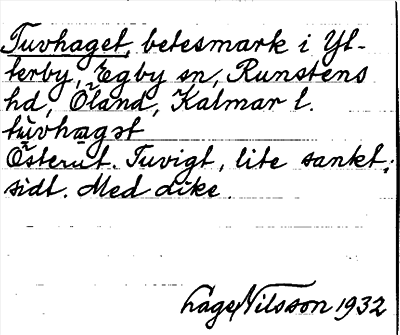 Tuvhaget, betesmark i Yt-
terby, Egby sn, Runstens
hd, Öland, Kalmar l.
tùvhagət
Österut. Tuvigt, lite sankt,
sidt. Med dike.
Lage Nilsson 1932